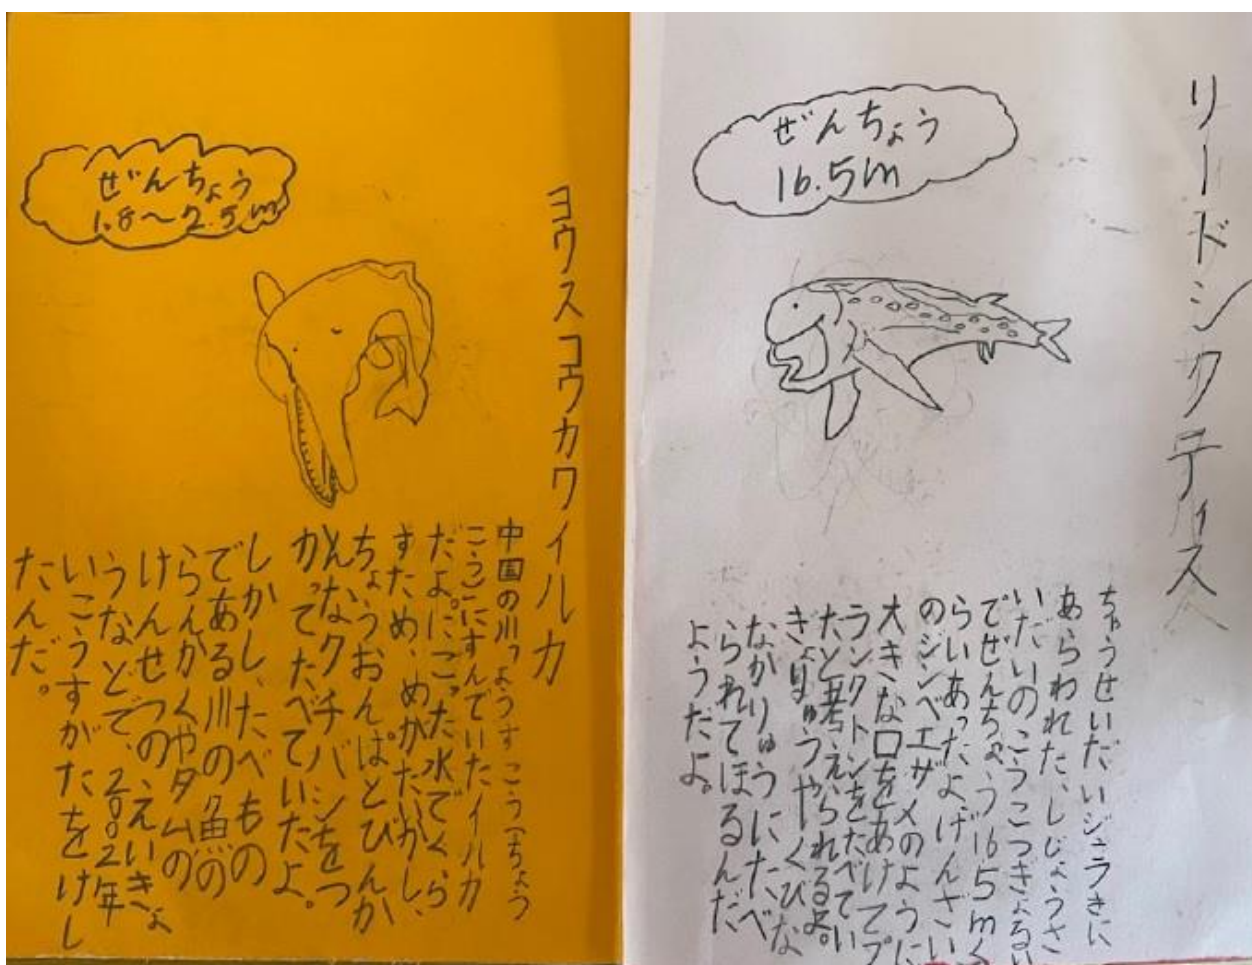 リードシクティス
ぜんちょう
16.5m
ちゅうせいだいジュラきに
あらわれた、しじょうさ
いだいのこうこつきょるい
でぜんちょう16.5mく
らいあったよ。げんざい
のジンベエザメのように
大きな口をあけてプ
ランクトンをたべてい
たと考えられるよ。
ぎょりゅうやくびな
なかりゅうにたべ
られてほるんだ
ようだよ。
ヨウスコウカワイルカ
ぜんちょう
1.8〜2.5m
中国の川っようすこう(ちょう
こう)にすんでいたイルカ
だよ。にごった水でくら
すため、めがたいかし、
ちょうおんぱとびんか
んなクチバシをつ
かってたべていたよ。
しかし、たべもの
である川の魚の
らんかくやダムの
けんせつの、えいきょ
うなどで、2002年
いこうすがたをけし
たんだ。